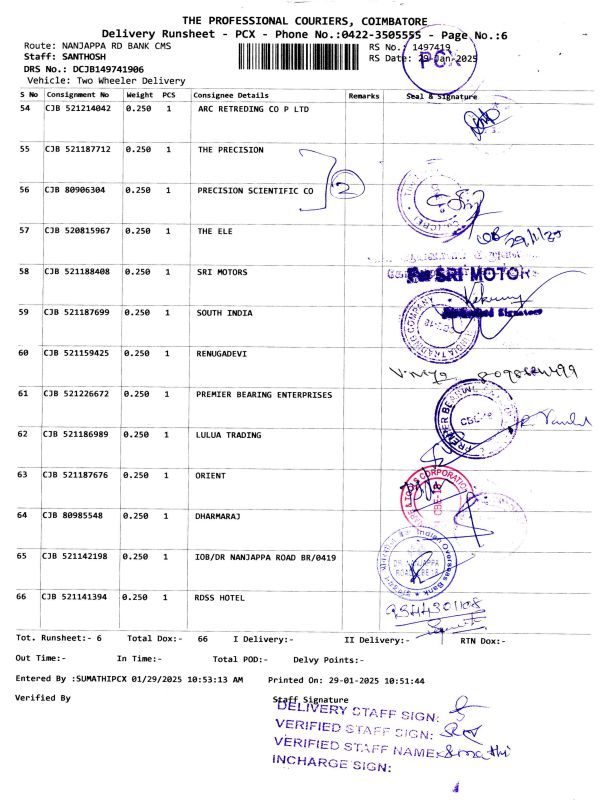 THE PROFESSIONAL COURIERS, COIMBATORE
Delivery Runsheet - PCX - Phone No.:0422-3505555 - Page No.:6
Route: NANJAPPA RD BANK CMS
RS No.: 1497419
Staff: SANTHOSH
RS Date: 29-Jan-2025
PCX
DRS No.: DCJB149741906
Vehicle: Two Wheeler Delivery
S No Consignment No Weight PCS Consignee Details Remarks Seal & Signature
54 CJB 521214042 0.250 1 ARC RETREDING CO P LTD
55 CJB 521187712 0.250 1 THE PRECISION
2
56 CJB 80906304 0.250 1 PRECISION SCIENTIFIC CO
57 CJB 520815967 0.250 1 THE ELE
29/1/25
58 CJB 521188408 0.250 1 SRI MOTORS
For SRI MOTORS
59 CJB 521187699 0.250 1 SOUTH INDIA
INDIA TRADING COMPANY
60 CJB 521159425 0.250 1 RENUGADEVI
61 CJB 521226672 0.250 1 PREMIER BEARING ENTERPRISES
PREMIER BEARING
CBE-18
62 CJB 521186989 0.250 1 LULUA TRADING
63 CJB 521187676 0.250 1 ORIENT
CORPORATION
CBE-18
64 CJB 80985548 0.250 1 DHARMARAJ
65 CJB 521142198 0.250 1 IOB/DR NANJAPPA ROAD BR/0419
Indian Overseas Bank
DR. NANJAPPA
ROAD
66 CJB 521141394 0.250 1 RDSS HOTEL
Tot. Runsheet:- 6 Total Dox:- 66 I Delivery:- II Delivery:- RTN Dox:-
Out Time:- In Time:- Total POD:- Delvy Points:-
Entered By :SUMATHIPCX 01/29/2025 10:53:13 AM Printed On: 29-01-2025 10:51:44
Verified By Staff Signature
DELIVERY STAFF SIGN:
VERIFIED STAFF SIGN:
VERIFIED STAFF NAME: Sumathi
INCHARGE SIGN: